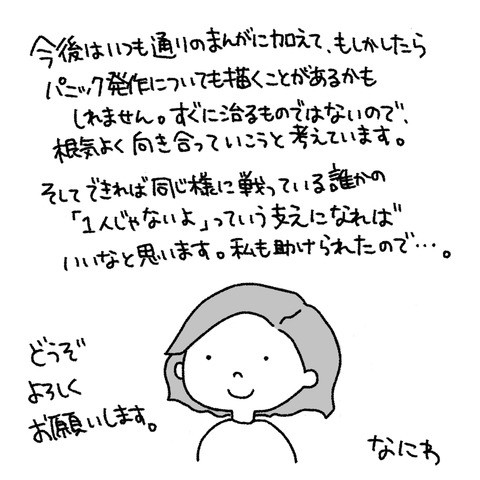 今後はいつも通りのまんがに加えて、もしかしたら
パニック発作についても描くことがあるかも
しれません。すぐに治るものではないので、
根気よく向き合っていこうと考えています。
そしてできれば同じ様に戦っている誰かの
「1人じゃないよ」っていう支えになれば
いいなと思います。私も助けられたので…。
どうぞ
よろしく
お願いします。
なにわ